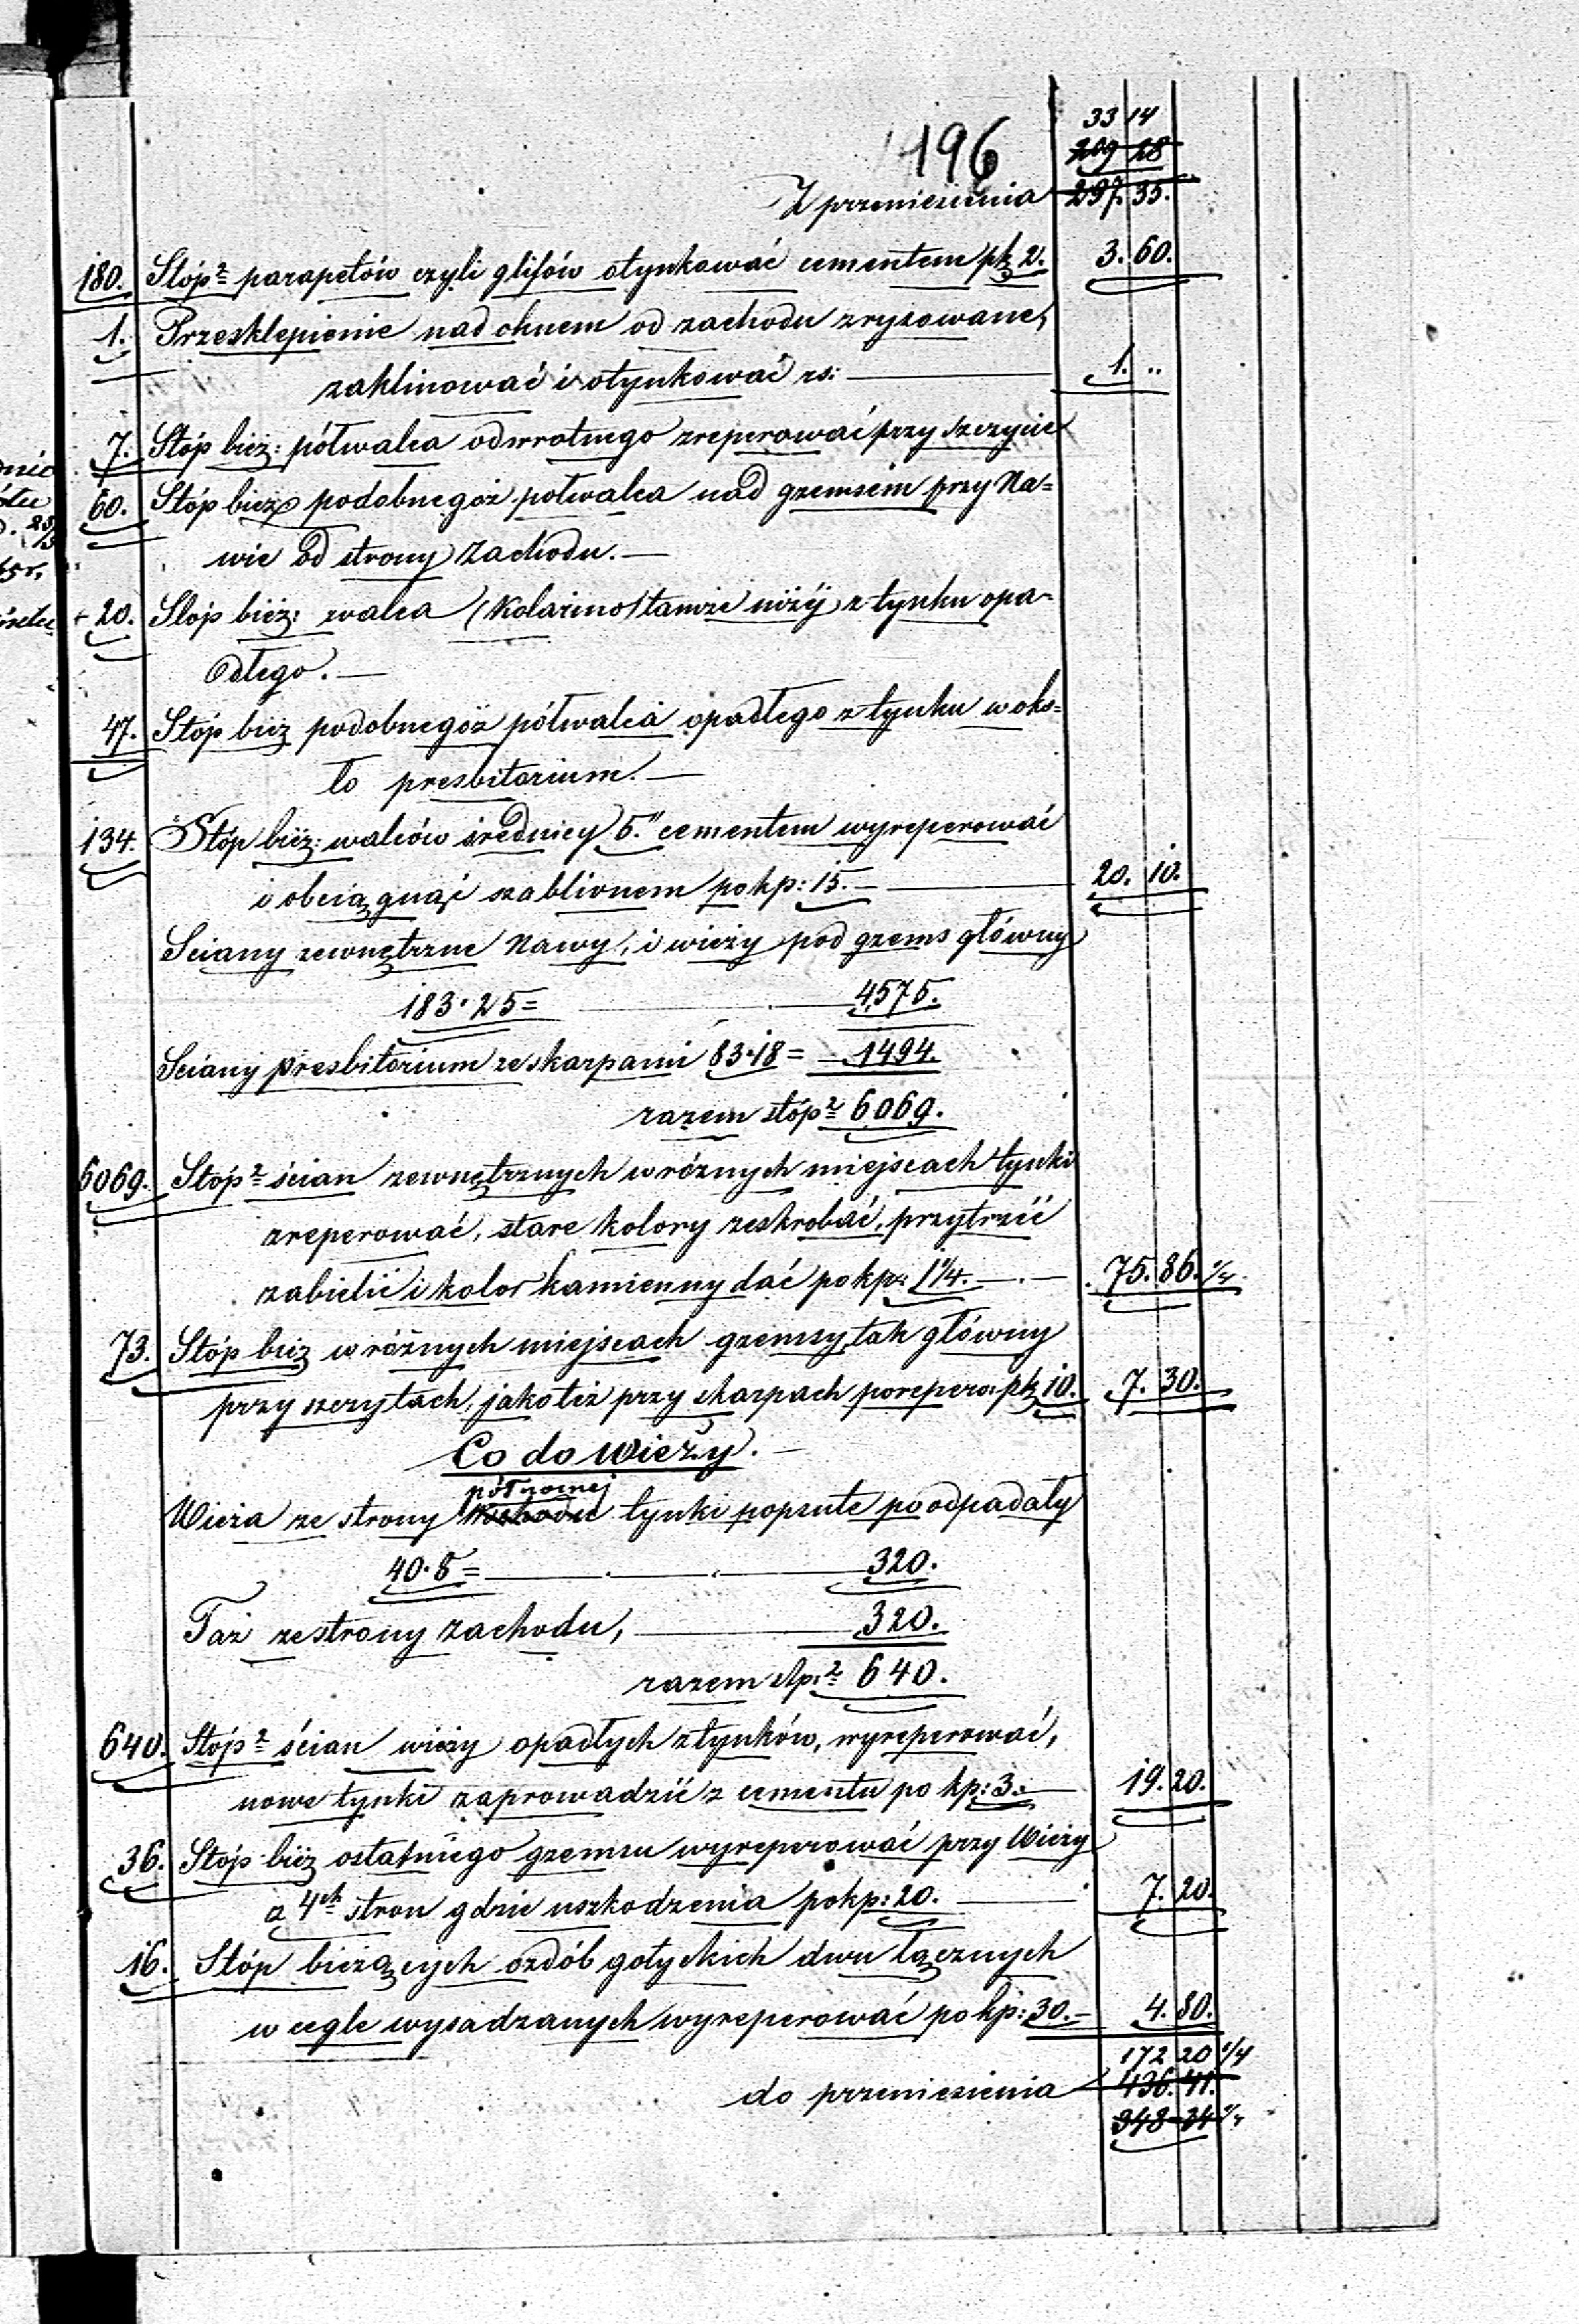 196
33 14
209 28
Z przeniesienia 297. 35.
180. Stóp² parapetów czyli glifów otynkować cementem pk 2. 3. 60.
1. Przesklepienie nad oknem od zachodu zrysowane,
zaklinować i otynkować rs: 1. ..
7. Stóp bież: półwalca odwrotnego zreperować przy szczycie
60. Stóp bież podobnegoż półwalca nad gzemsem przy Na=
wie od strony Zachodu.—
+ 20. Stóp bież: walca (Kolarino) tamże niżéj z tynku opa-
dłego.—
47. Stóp bież podobnegoż półwalca opadłego z tynku w oko=
ło presbitorium.—
134. Stóp bież: walców średnicy 5." cementem wyreperować
i obciągnąć szablonem po kp: 15.— 20. 10.
Sciany zewnętrzne Nawy, i wieży pod gzems główny
183·25= 4575.
Sciany presbitorium ze skarpami 83·18= 1494.
razem stóp² 6069.
6069. Stóp² ścian zewnętrznych w różnych miejscach tynki
zreperować, stare kolory zeskrobać, przytrzéć
zabielić i kolor kamienny dać po kp: 1¼.— 75. 86. ¼
73. Stóp bież w różnych miejscach gzemsy tak główny
przy szczytach, jako też przy skarpach porepero: pk 10. 7. 30.
Co do Wieży.—
północnej
Wieża ze strony Wschodu tynki popsute poodpadały
40·8= 320.
Taż ze strony Zachodu, 320.
razem stp:² 640.
640. Stóp² ścian wieży opadłych z tynków, wyreperować,
nowe tynki zaprowadzić z cementu po kp: 3.— 19. 20.
36. Stóp bież ostatniego gzemsu wyreperować przy Wieży
z 4ch stron gdzie uszkodzenia po kp: 20. 7. 20.
16. Stóp bieżących ozdób gotyckich dwu łącznych
w cegle wysadzanych wyreperować po kp: 30.— 4. 80.
172 20 ¼
do przeniesienia 436. 41.
348 34 ¼